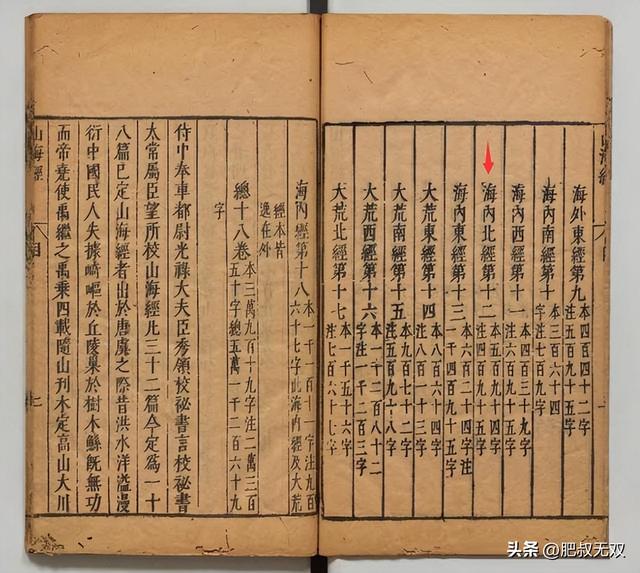 海外東經第九
本四百四十二字
注五百九十五字
海內南經第十
本三百六十四
字注七百九字
海內西經第十一
本四百三十九字
注六百九十五字
海內北經第十二
本五百九十四字
注四百九十五字
海內東經第十三
本六百二十四字注
一千四百九十五字
大荒東經第十四
本八百六十四字
注八百十三字
大荒南經第十五
本九百七十二字
注五百九十八字
大荒西經第十六
本一千二百八十二
字注一千二百三字
大荒北經第十七
本一千五十六字
注七百六十七字
海內經第十八
本一千百十一字注九百
六十七字此海內經及大荒
經本皆
逸在外
總十八卷
本三萬九百十九字注二萬三百
五十字總五萬一千二百六十九
字
侍中奉車都尉光祿大夫臣秀領校祕書言校祕書
太常屬臣望所校山海經凡三十二篇今定為一十
八篇已定山海經者出於唐虞之際昔洪水洋溢漫
衍中國民人失據崎嶇於丘陵巢於樹木鯀既無功
而帝堯使禹繼之禹乘四載隨山刊木定高山大川
山海經
目
頭条 @肥叔无双